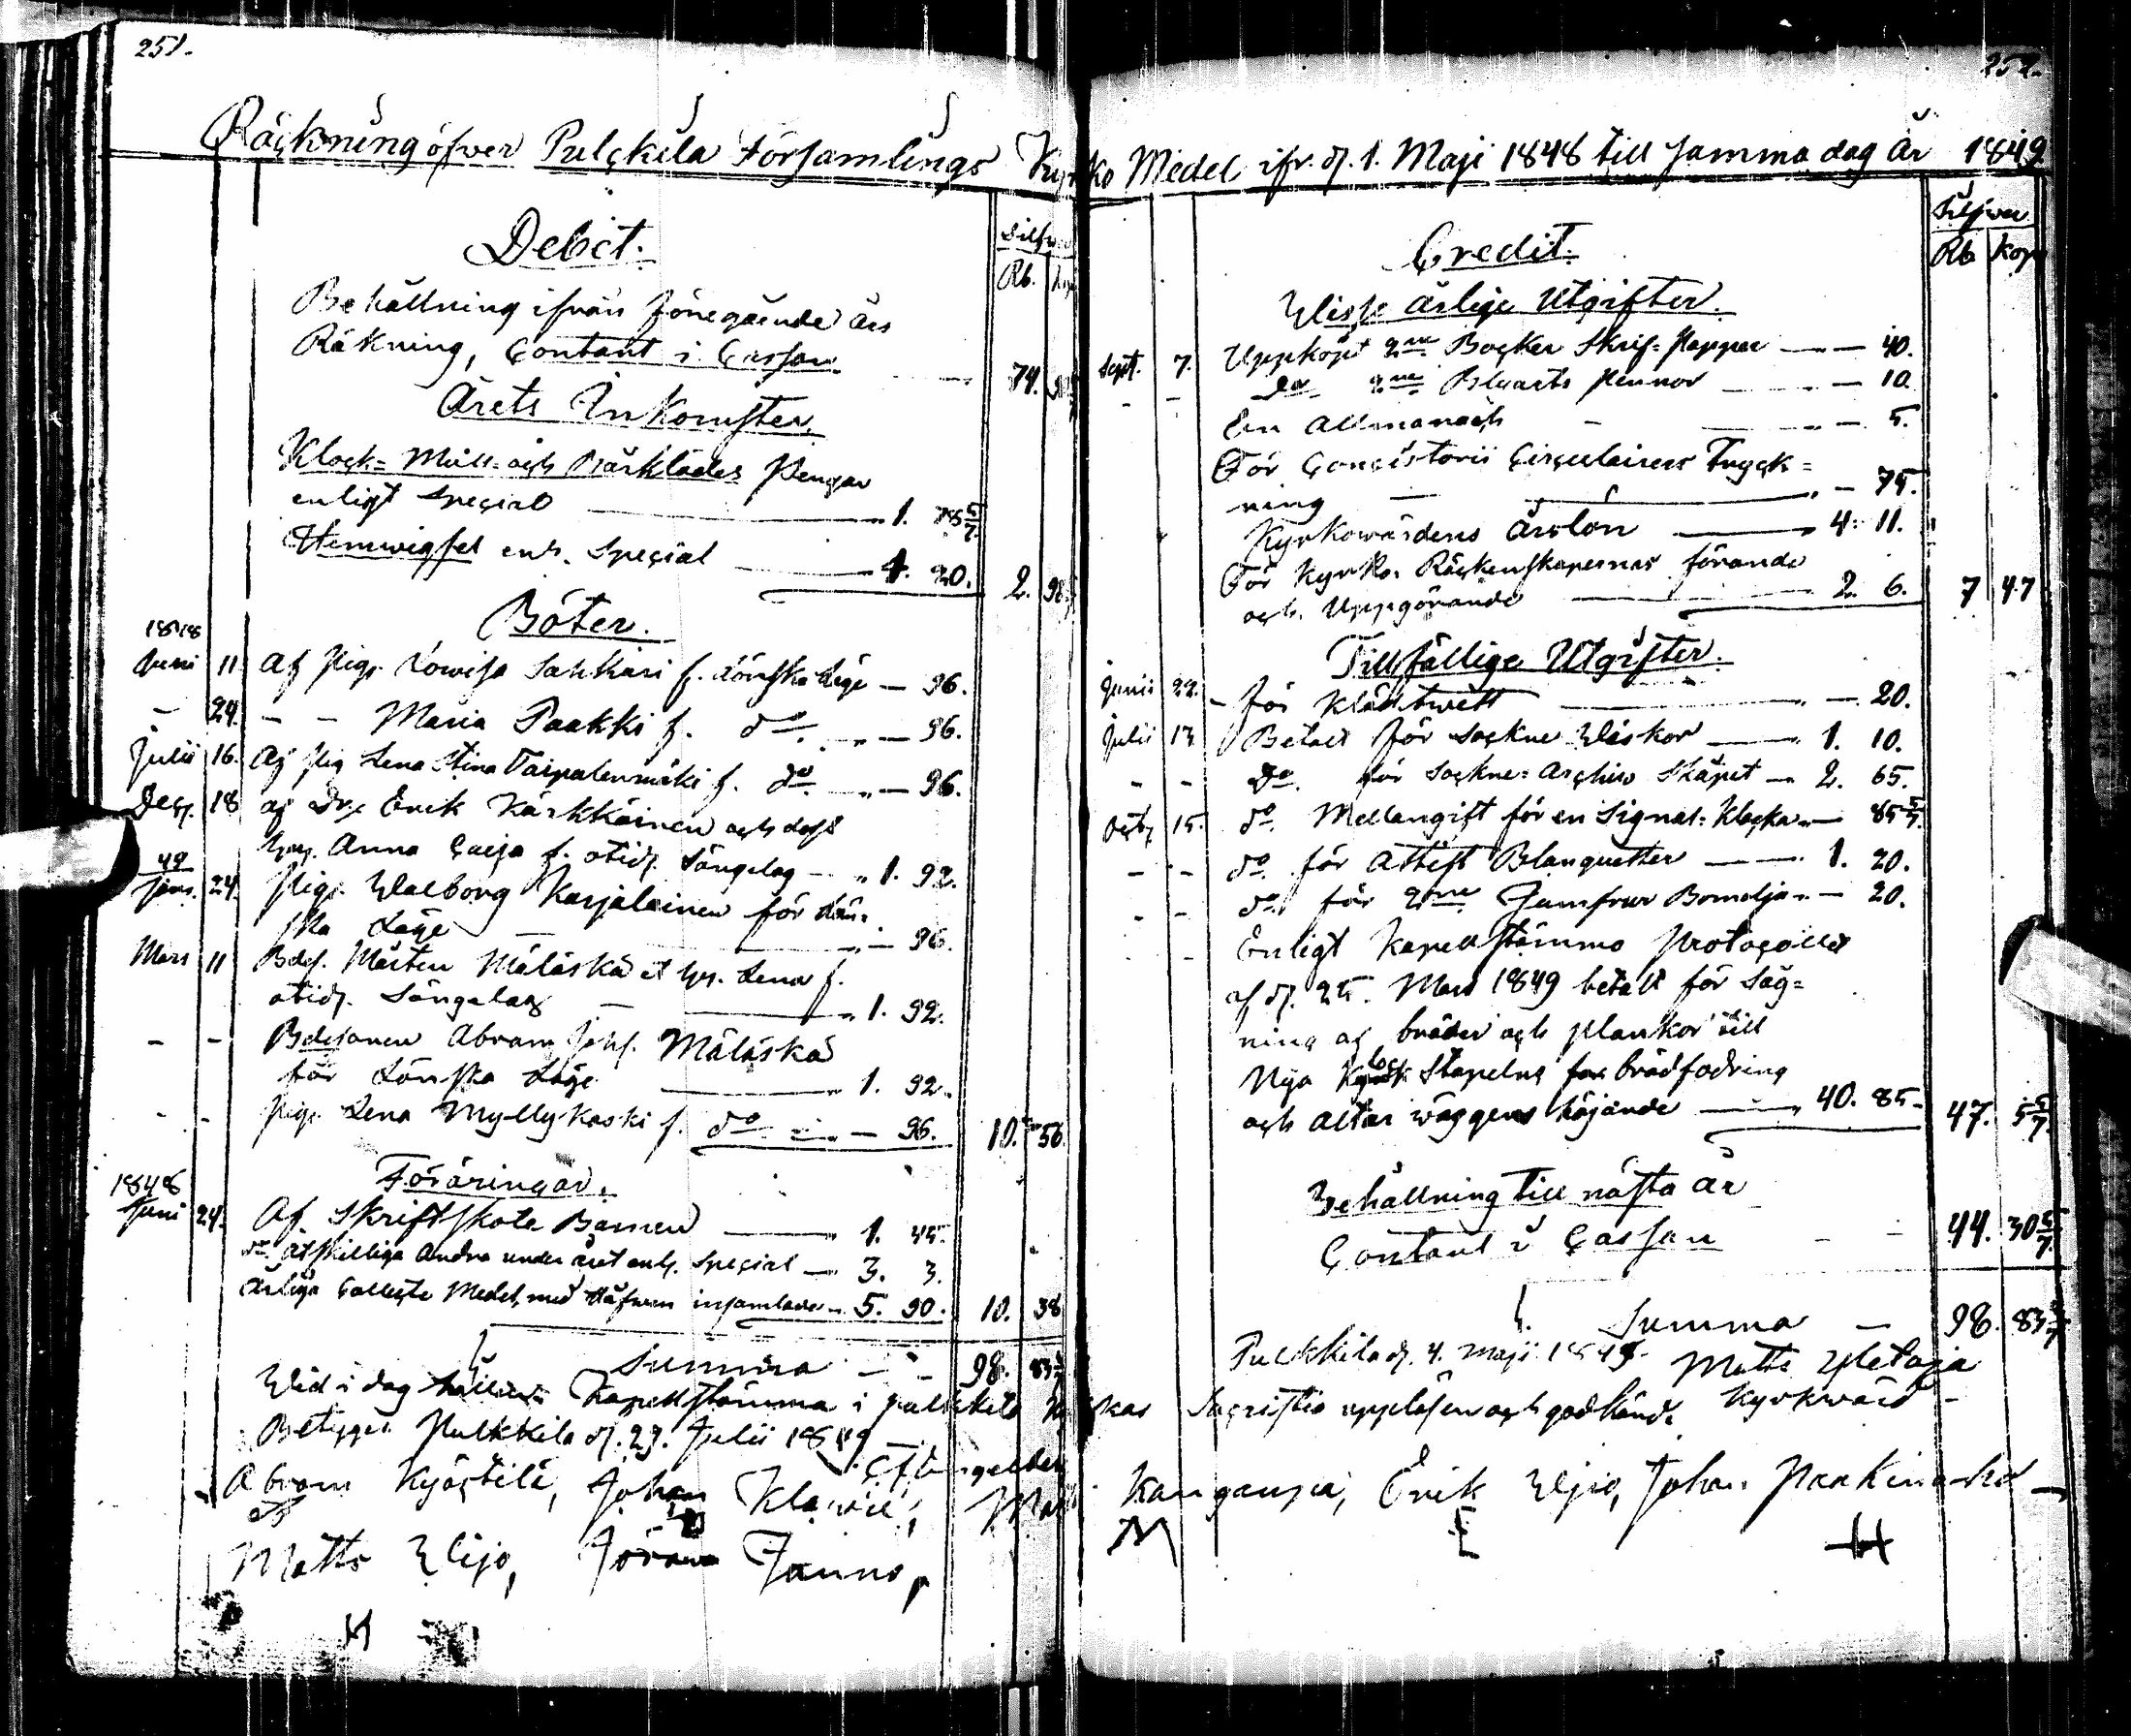 251.
Räckning öfver Pulckila Församlings Kyr
Debet.
Silfver
Rb. Kop
Behållning ifrån föregående års
Räkning, Contant i Cassan — 74.
Årets Inkomster.
Klock- Mull- och Bårklädes Pengar
enligt Special — 1. 78 5/7
Stamwigsel enl. Special — 1. 20. 2. 98
Böter.
1848
Juni 11 Af Pig. Lowisa Sahkari f. Lönska Läge — 96.
— 24. — — Maria Paakki f. do — 96.
Julii 16. Af Pig Lena Stina Taipalenmäki f. do — 96.
Dec. 18 af Dr. Erick Kärkkäinen och dess
hu. Anna Caisa f. otid. Sängelag — 1. 92.
49
Jan. 24. Pig. Walborg Karjalainen för Lön-
ska Läge — 96.
Mars 11 Bdes. Mårten Mäläskä et hu. Lena f.
otid. Sängelag — 1. 92.
— — Bdesonen Abram Joh. Mäläskä
för Lönska Läge — 1. 92.
- - Pig. Lena Myllykoski f. do — 96. 10. 56.
Föräringar.
1848
Juni 24. Af Skriftskole Barnen — 1. 45.
do Åtskilliga Andra under året enl. Special — 3. 3.
Årliga Collecte Medel, med Håfwen insamlade — 5. 90. 10. 38
Summa — 98. 83
Wid i dag hållen Kapellstämma i Pulkkila Ky
Betygar Pulkkila d. 29. Julii 1849
Abram Kyöstilä, Johan Klawu, Mat
Matts Ylijo, Jöran Jaunu,
252.
ko Medel ifr. d. 1. Maji 1848 till samma dag År 1849
Credit.
Silfver
Rb Kop
Wisse årlige Utgifter.
Sept. 7. Uppköpt 2ne Böcker Skrif-Papper — 40.
- - do 2ne Blyarts Pennor — 10.
En Allmanach — 5.
För Concistorii Circulairers Tryck-
ning — 75.
Kyrkowärdens Årslön — 4. 11.
För Kyrko Räckenskapernas förande
och Uppgörande — 2. 6. 7 47
Tillfällige Utgifter.
Junii 22. för Klädtwätt — 20.
Julii 13 Betalt för Sockne Wäskor — 1. 10.
- - do för Sockne-Archivs Skåpet — 2. 65.
Octb. 15. do Mellangift för en Signal-Klocka — 85 5/7.
- - do för Attest Blanquetter — 1. 20.
- - do för 2ne Jumfrur Bomolja — 20.
- - Enligt Kapellstämmo Protocollet
af d. 25. Mars 1849 betalt för Såg-
ning af bräder och Plankor till
Nya Klock Stapelns brädfodring
och Altar wäggens höjande — 40. 85. 47. 5 5/7.
Behållning till nästa år
Contant i Cassan — 44. 30 5/7.
Summa — 98. 83 3/7
Pulkkila d. 4. Maji 1849. Matts Yletaja
Kyrkwärd
kas Sacristia uppläsen och godkänd.
Kangaspä, Erik Ylijo, Johan Paakinaho
M E H